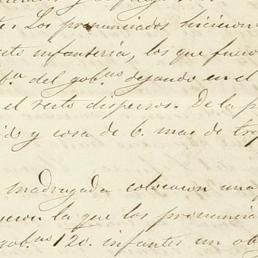 te. Los pronunciados hicieron
esto infanteria, los que fueron
fza. del gobno dejando en el
el resto dispersos. De la p
ids y cosa de 6. mas de tro
madrugada colocaron una
fueron la que los pronuncia
gobno 120. infantes un ob